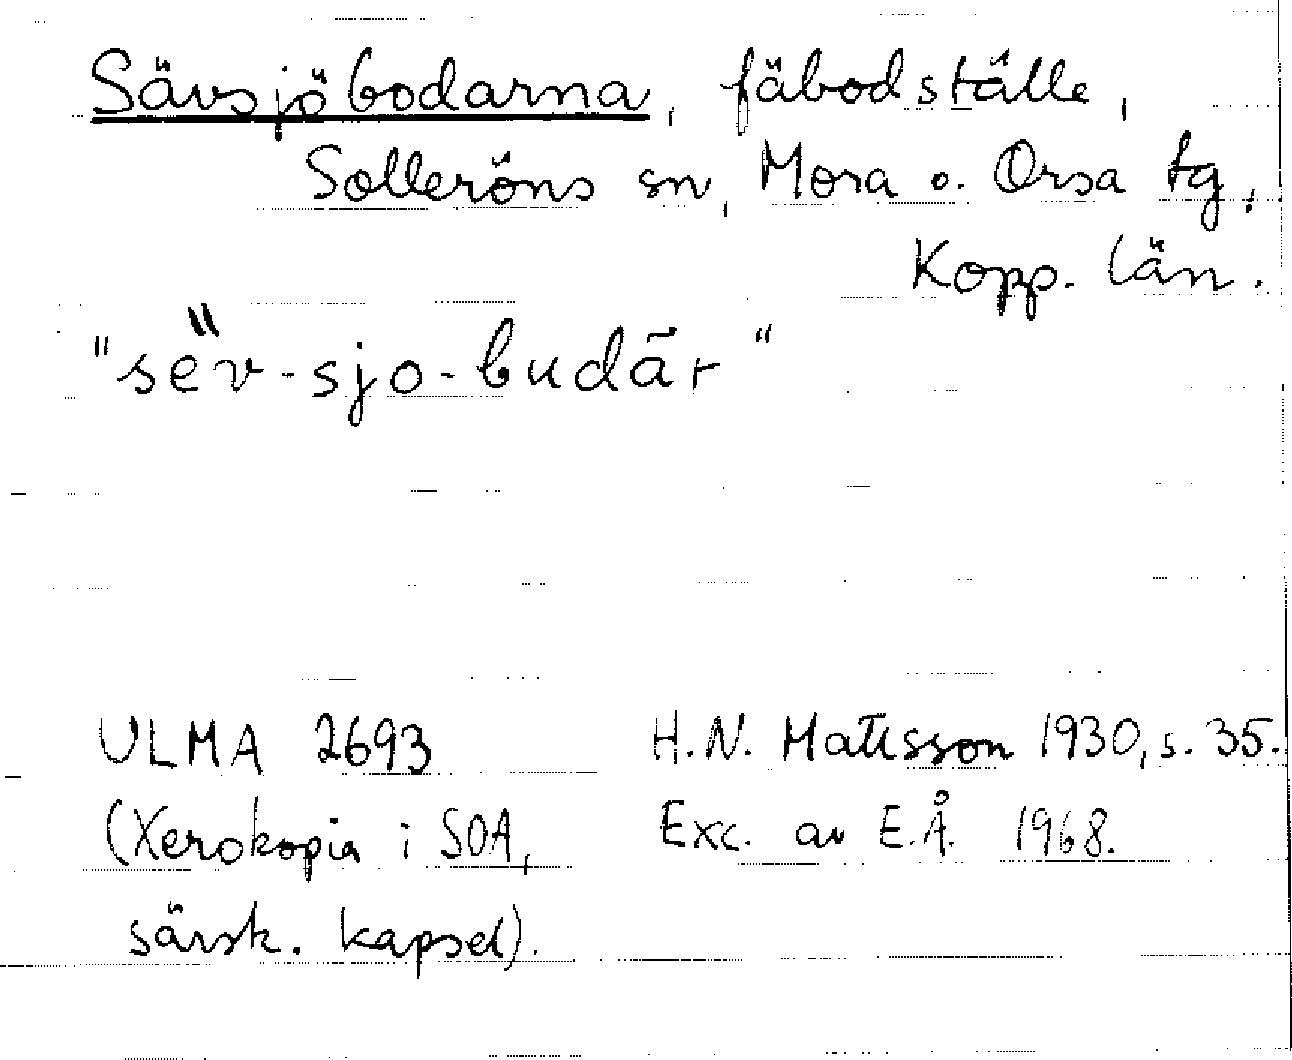 Sävsjöbodarna, fäbodställe,
Solleröns sn, Mora o. Orsa tg,
Kopp. län.
"sëv-sjo-budār"
ULMA 2693 H.N. Mattsson 1930, s. 35.
(Xerokopia i SOA, Exc. av E.Å. 1968.
särsk. kapsel).